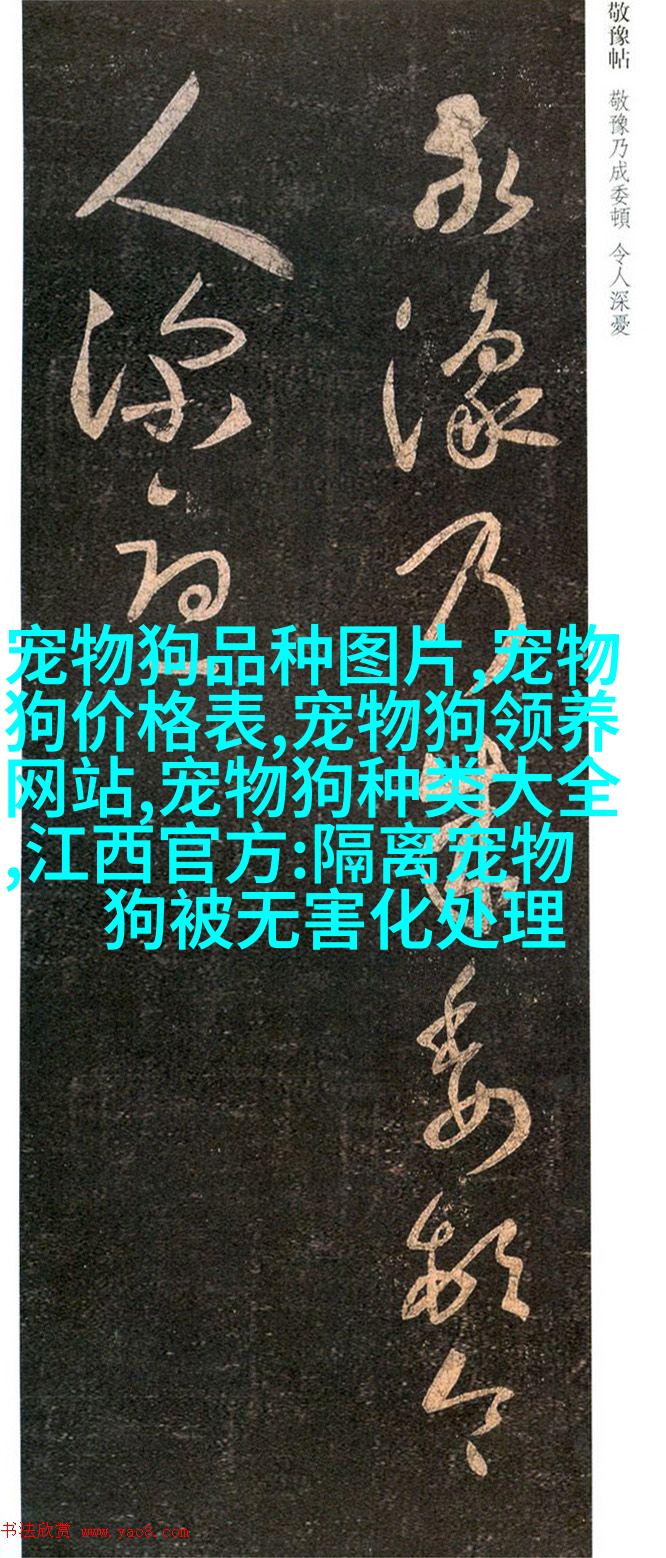 敬豫帖 敬豫乃成委頓 令人深憂
敬豫乃成委頓令
人深憂
宠物狗品种图片,宠物
狗价格表,宠物狗领养
网站,宠物狗种类大全
,江西官方:隔离宠物
狗被无害化处理
书法欣赏 www.yac8.com